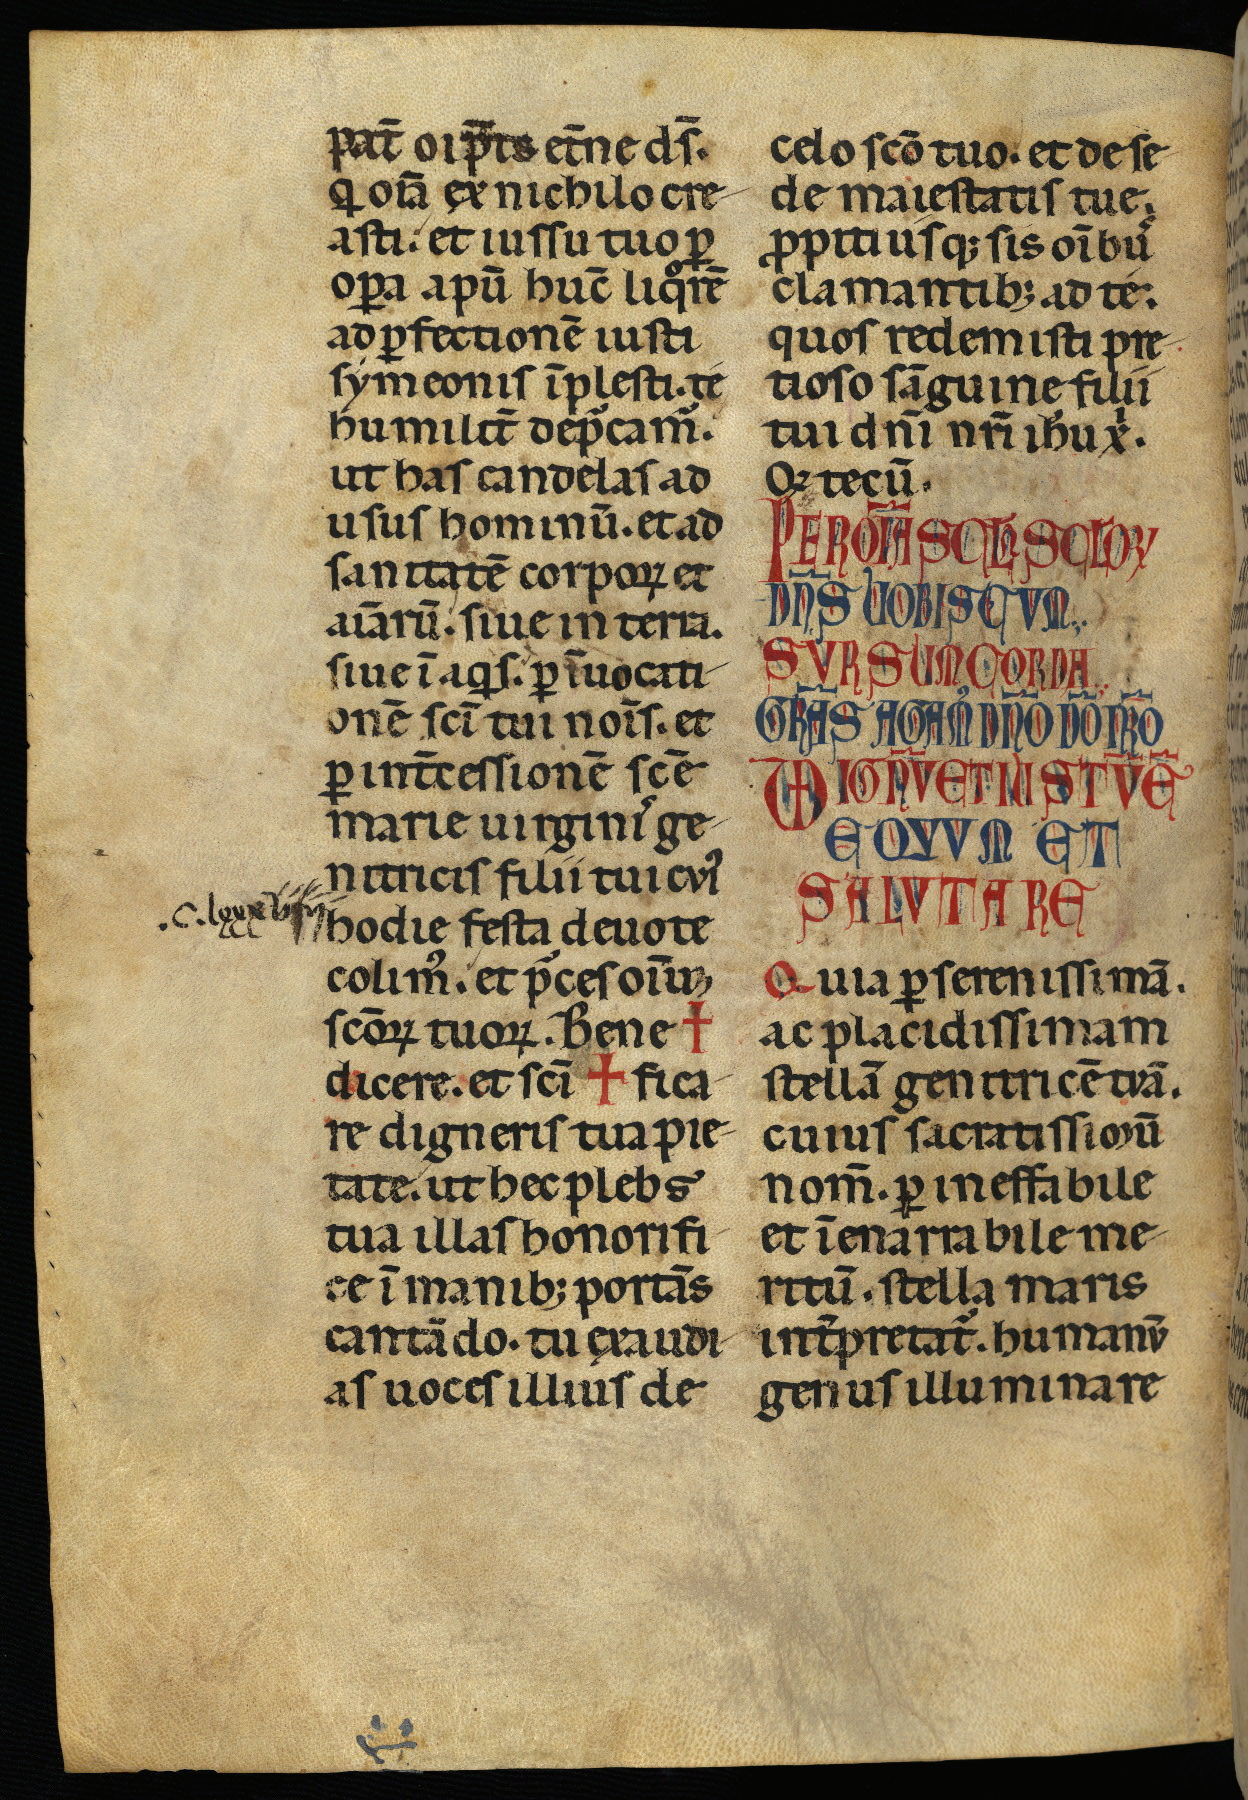 pat̄ oip̄ts et̄ne ds̄.
q oīa ex nichilo cre-
asti. et iussu tuo ꝑ
oꝑa apū hūc liqorē
ad ꝑfectionē iusti
symeonis īplesti. te
humilit̄ dep̄cam᷒.
ut has candelas ad
usus hominū. et ad
sanitatē corpoꝝ et
aīarū. siue in terra.
siue ī aqis. ꝑ īuocati-
onē scī tui noīs. et
ꝑ int̄cessionē scē
marie uirginis ge-
nitricis filii tui cuꝰ
hodie festa deuote
colimꝰ. et p̄ces oīum
scōꝝ tuoꝝ. Bene ☩
dicere. et scī ☩ fica-
re digneris tua pie-
tate. ut hec plebs
tua illas honorifi-
ce ī manibꝫ portās
cantādo. tu exaudi-
as uoces illius de
celo scō tuo. et de se-
de maiestatis tue.
ꝓpitiusqꝫ sis oībus
clamantibꝫ ad te.
quos redemisti pre-
tioso sāguine filii
tui dn̄i nr̄i ihu xp̄i.
Qꝛ tecū.
PER OM̄IA SCLA SCLOꝜ
DN̄S UOBISCVM.
SVRSUM CORDA.
GR̄AS AGAMꝰ DN̄O DŌ NR̄O
DIGN̄V ET IUSTV̄ Ē
EQVVM ET
SALVTARE
Quia ꝑ serenissimā.
ac placidissimam
stellā genitricē tuā.
cuius sacratissimū
nom̄. ꝑ ineffabile
et īenarrabile me-
ritū. stella maris
int̄pretat᷒. humanū
genus illuminare